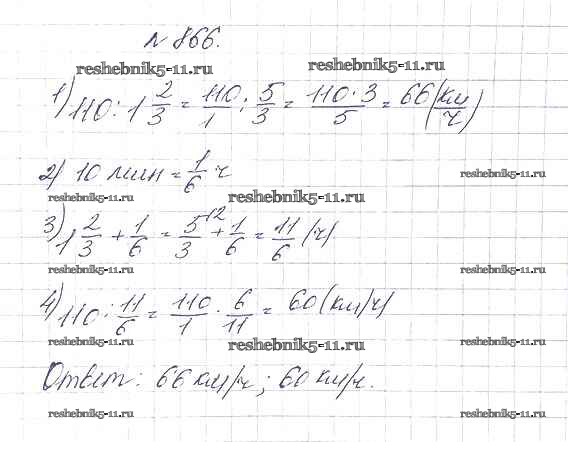 № 866.
reshebnik5-11.ru reshebnik5-11.ru
1) 110 : 1 2/3 = 110/1 : 5/3 = 110·3/5 = 66 (км/ч)
2) 10 мин = 1/6 ч
reshebnik5-11.ru reshebnik5-11.ru reshebnik5-11.ru
3) 1 2/3 + 1/6 = 5/3 \2 + 1/6 = 11/6 (ч)
reshebnik5-11.ru reshebnik5-11.ru
4) 110 : 11/6 = 110/1 · 6/11 = 60 (км/ч)
reshebnik5-11.ru reshebnik5-11.ru reshebnik5-11.ru
Ответ: 66 км/ч; 60 км/ч.
reshebnik5-11.ru reshebnik5-11.ru